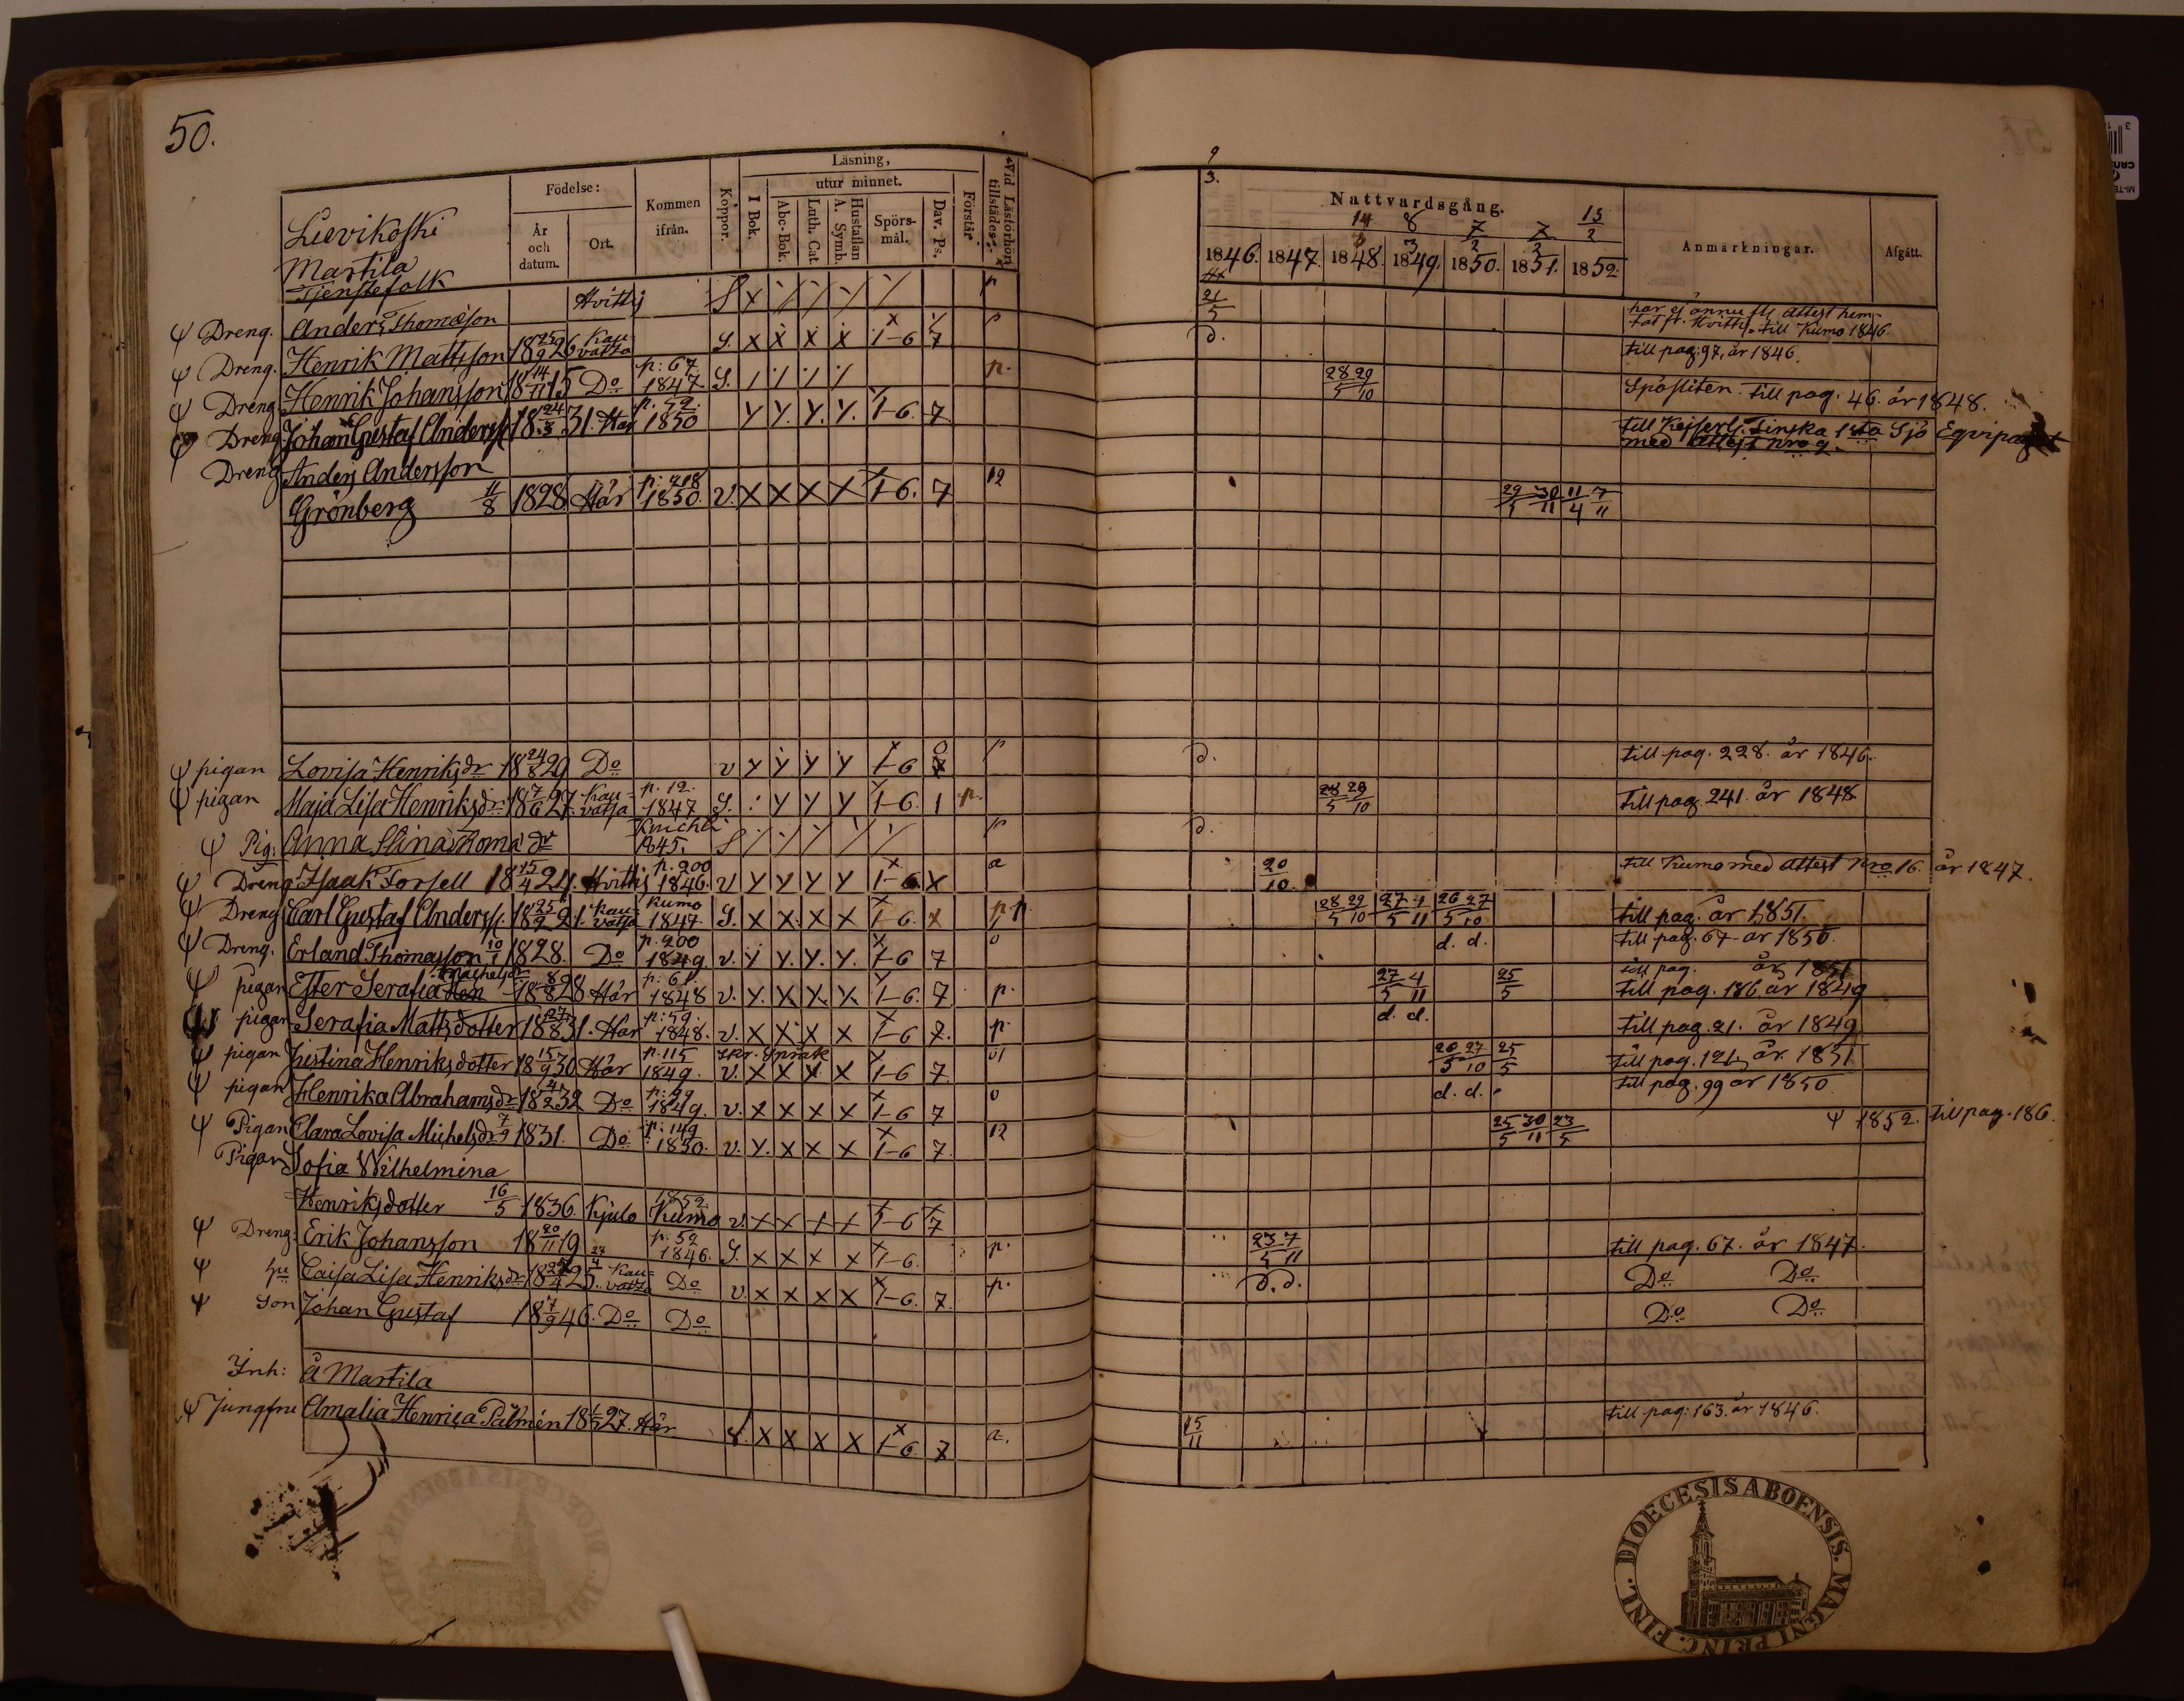 50.
Lievikoski
Martila
Tjenstefolk
Födelse:
År och datum.
Ort.
Kommen ifrån.
Koppor.
Läsning,
utur minnet.
I Bok.
Abc-Bok.
Luth. Cat.
Hustaflan A. Symb.
Spörsmål.
Dav. Ps.
Förstår
Vid Läsförhör tillstädes
Nattvardsgång.
14 8 7/2 7/2 13/2
1846. 1847. 1848. 1849. 1850. 1851. 1852.
Anmärkningar.
Afgått.
Dreng. Anders Thomasson Hvittis S X p 21/5 har ej ännu fle attest hem-
tat fr. Hvittis. till Kumo 1846.
Dreng. Henrik Mattsson 18 25/9 26 Kauvatza S. X X X X 1-6 7 p d. till pag: 97, år 1846.
Dreng Henrik Johansson 18 14/11 15 Do p: 67 1847 S. p. 28/5 29/10 Spofliten till pag. 46. år 1848.
Dreng Johan Gustaf Anderss. 18 24/3 31. Här p. 52. 1850 Y Y. Y. Y. 1-6. 7 till Kejserl. Finska 1sta Sjö Eqvipaget
med attest nro 2.
Dreng Anders Andersson
Grönberg 11/8 1828 Här p: 218 1850. v. X X X X 1-6. 7 12 29/5 30/11 11/4 7/11
pigan Lovisa Henriksdr 18 24/8 29 Do v Y Y Y Y 1-6 p d. till pag. 228. år 1846.
pigan Maja Lisa Henriksdr 18 7/6 27. Kauvatsa p. 12. 1847 S. Y Y Y 1-6. 1 p. 28/5 29/10 till pag. 241. år 1848
Pig: Anna Stina Thoma dr 1845. S p d.
Dreng Isaak Forsell 18 15/4 24. Hvittis p. 200 1846. v Y Y Y Y 1-6 X a 20/10. till Kumo med attest nro 16. år 1847.
Dreng Carl Gustaf Anderss. 18 25/9 21. Kauvatsa Kumo 1847 S. X X. X X 1-6. X p p. 28/5 29/10 27/5 4/11 26/5 27/10 till pag. år 1851.
Dreng. Erland Thomasson 10/1 1828. Do p. 200 1849. v. Y Y. Y. Y. 1-6 7 o d. d. till pag. 67 år 1850.
till pag. år 1851
pigan Ester Serafia Michelsdr 18 8/8 28 Här p: 61. 1848 v. Y. X X. X. 1-6. 7 p. 27/5 4/11 25/5 till pag. 186 år 1849
pigan Serafia Mattsdotter 18 27/8 31. Här p: 59. 1848. v. X X X X 1-6 7. p. d. d. till pag. 21. år 1849
pigan Justina Henriksdotter 18 15/9 30 Här p. 115 1849. v. X X X X 1-6 7. 01 26/5 27/10 25/5 till pag. 121 år 1851
pigan Henrika Abrahamsdr 18 4/2 32 Do p: 99 1849. v. X X X X 1-6 7 o d. d. till pag. 99 år 1850
Pigan Clara Lovisa Michelsdr 7/9 1831. Do p: 149 1850. v. Y. X X X 1-6 7. 12 25/5 30/11 23/5 1852. till pag. 186.
Pigan Sofia Wilhelmina
Henriksdotter 16/5 1836. Kjulo 1852 Kumo v. X X X X 1-6 7
Dreng. Erik Johansson 18 20/11 19 p: 52 1846. S. X X X X 1-6. p. 23/5 7/11 till pag. 67. år 1847.
hu Caisa Lisa Henriksdr 18 25. Kauvatza Do v. X X X X 1-6. 7. p. d. d. Do Do
Son Johan Gustaf 18 7/9 46. Do Do Do Do
Inh: å Martila
Jungfru Amalia Henrica Palmén 18 27. Här X X X X 1-6. 7 a. 15/11 till pag: 163. år 1846.
DIOECESIS ABOENSIS. MAGNI PRINC. FINL.